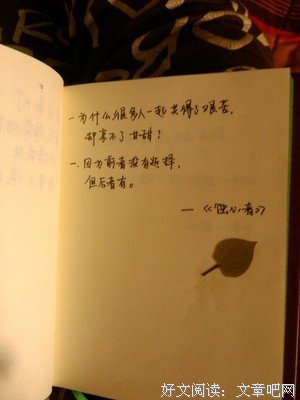 一为什么很多人一起共得了艰苦，
却享不了甘甜？
一.因为前者没有选择，
但后者有。
—《蚀心者》
好文阅读：文章吧网